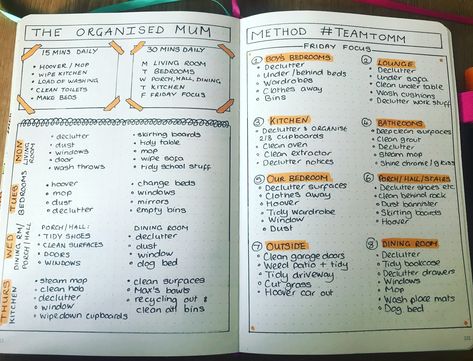 THE ORGANISED MUM
15 MINS DAILY
• HOOVER / MOP
• WIPE KITCHEN
• LOAD OF WASHING
• CLEAN TOILETS
• MAKE BEDS
30 MINS DAILY
M LIVING ROOM
T BEDROOMS
W PORCH, HALL, DINING
T KITCHEN
F FRIDAY FOCUS
MON
LIVING ROOM
• declutter
• dust
• windows
• door
• wash throws
• skirting boards
• tidy table
• mop
• wipe sofa
• tidy school stuff
TUES
BEDROOMS
• hoover
• mop
• dust
• declutter
• change beds
• windows
• mirrors
• empty bins
WED
DINING RM/
PORCH/HALL
PORCH/HALL:
• TIDY SHOES
• CLEAN SURFACES
• DOORS
• WINDOWS
DINING ROOM
• declutter
• dust
• window
• dog bed
THURS
KITCHEN
• steam mop
• clean hob
• declutter
• window
• wipe down cupboards
• clean surfaces
• Max's bowls
• recycling out &
clean all bins
METHOD #TEAMTOMM
FRIDAY FOCUS
1 BOY'S BEDROOMS
• Declutter
• Under/behind beds
• Wardrobes
• Clothes away
• Bins
2 LOUNGE
• Declutter
• Under sofa
• Clean under table
• Wash cushions
• Declutter work stuff
3 KITCHEN
• Declutter & ORGANISE
2/3 CUPBOARDS
• Clean oven
• Clean extractor
• Declutter notices
4 BATHROOMS
• Deep clean surfaces
• Clean grout
• Declutter
• Steam mop
• Shine chrome / glass
5 OUR BEDROOM
• Declutter surfaces
• Clothes away
• Hoover
• Tidy wardrobe
• Window
• Dust
6 PORCH/HALL/STAIRS
• Declutter shoes etc
• Clean behind rack
• Dust banister
• Skirting boards
• Hoover
7 OUTSIDE
• Clean garage doors
• Weed patio + tidy
• Tidy driveway
• Cut grass
• Hoover car out
8 DINING ROOM
• Declutter
• Tidy bookcase
• Declutter drawers
• Windows
• Mop
• Wash place mats
• Dog bed